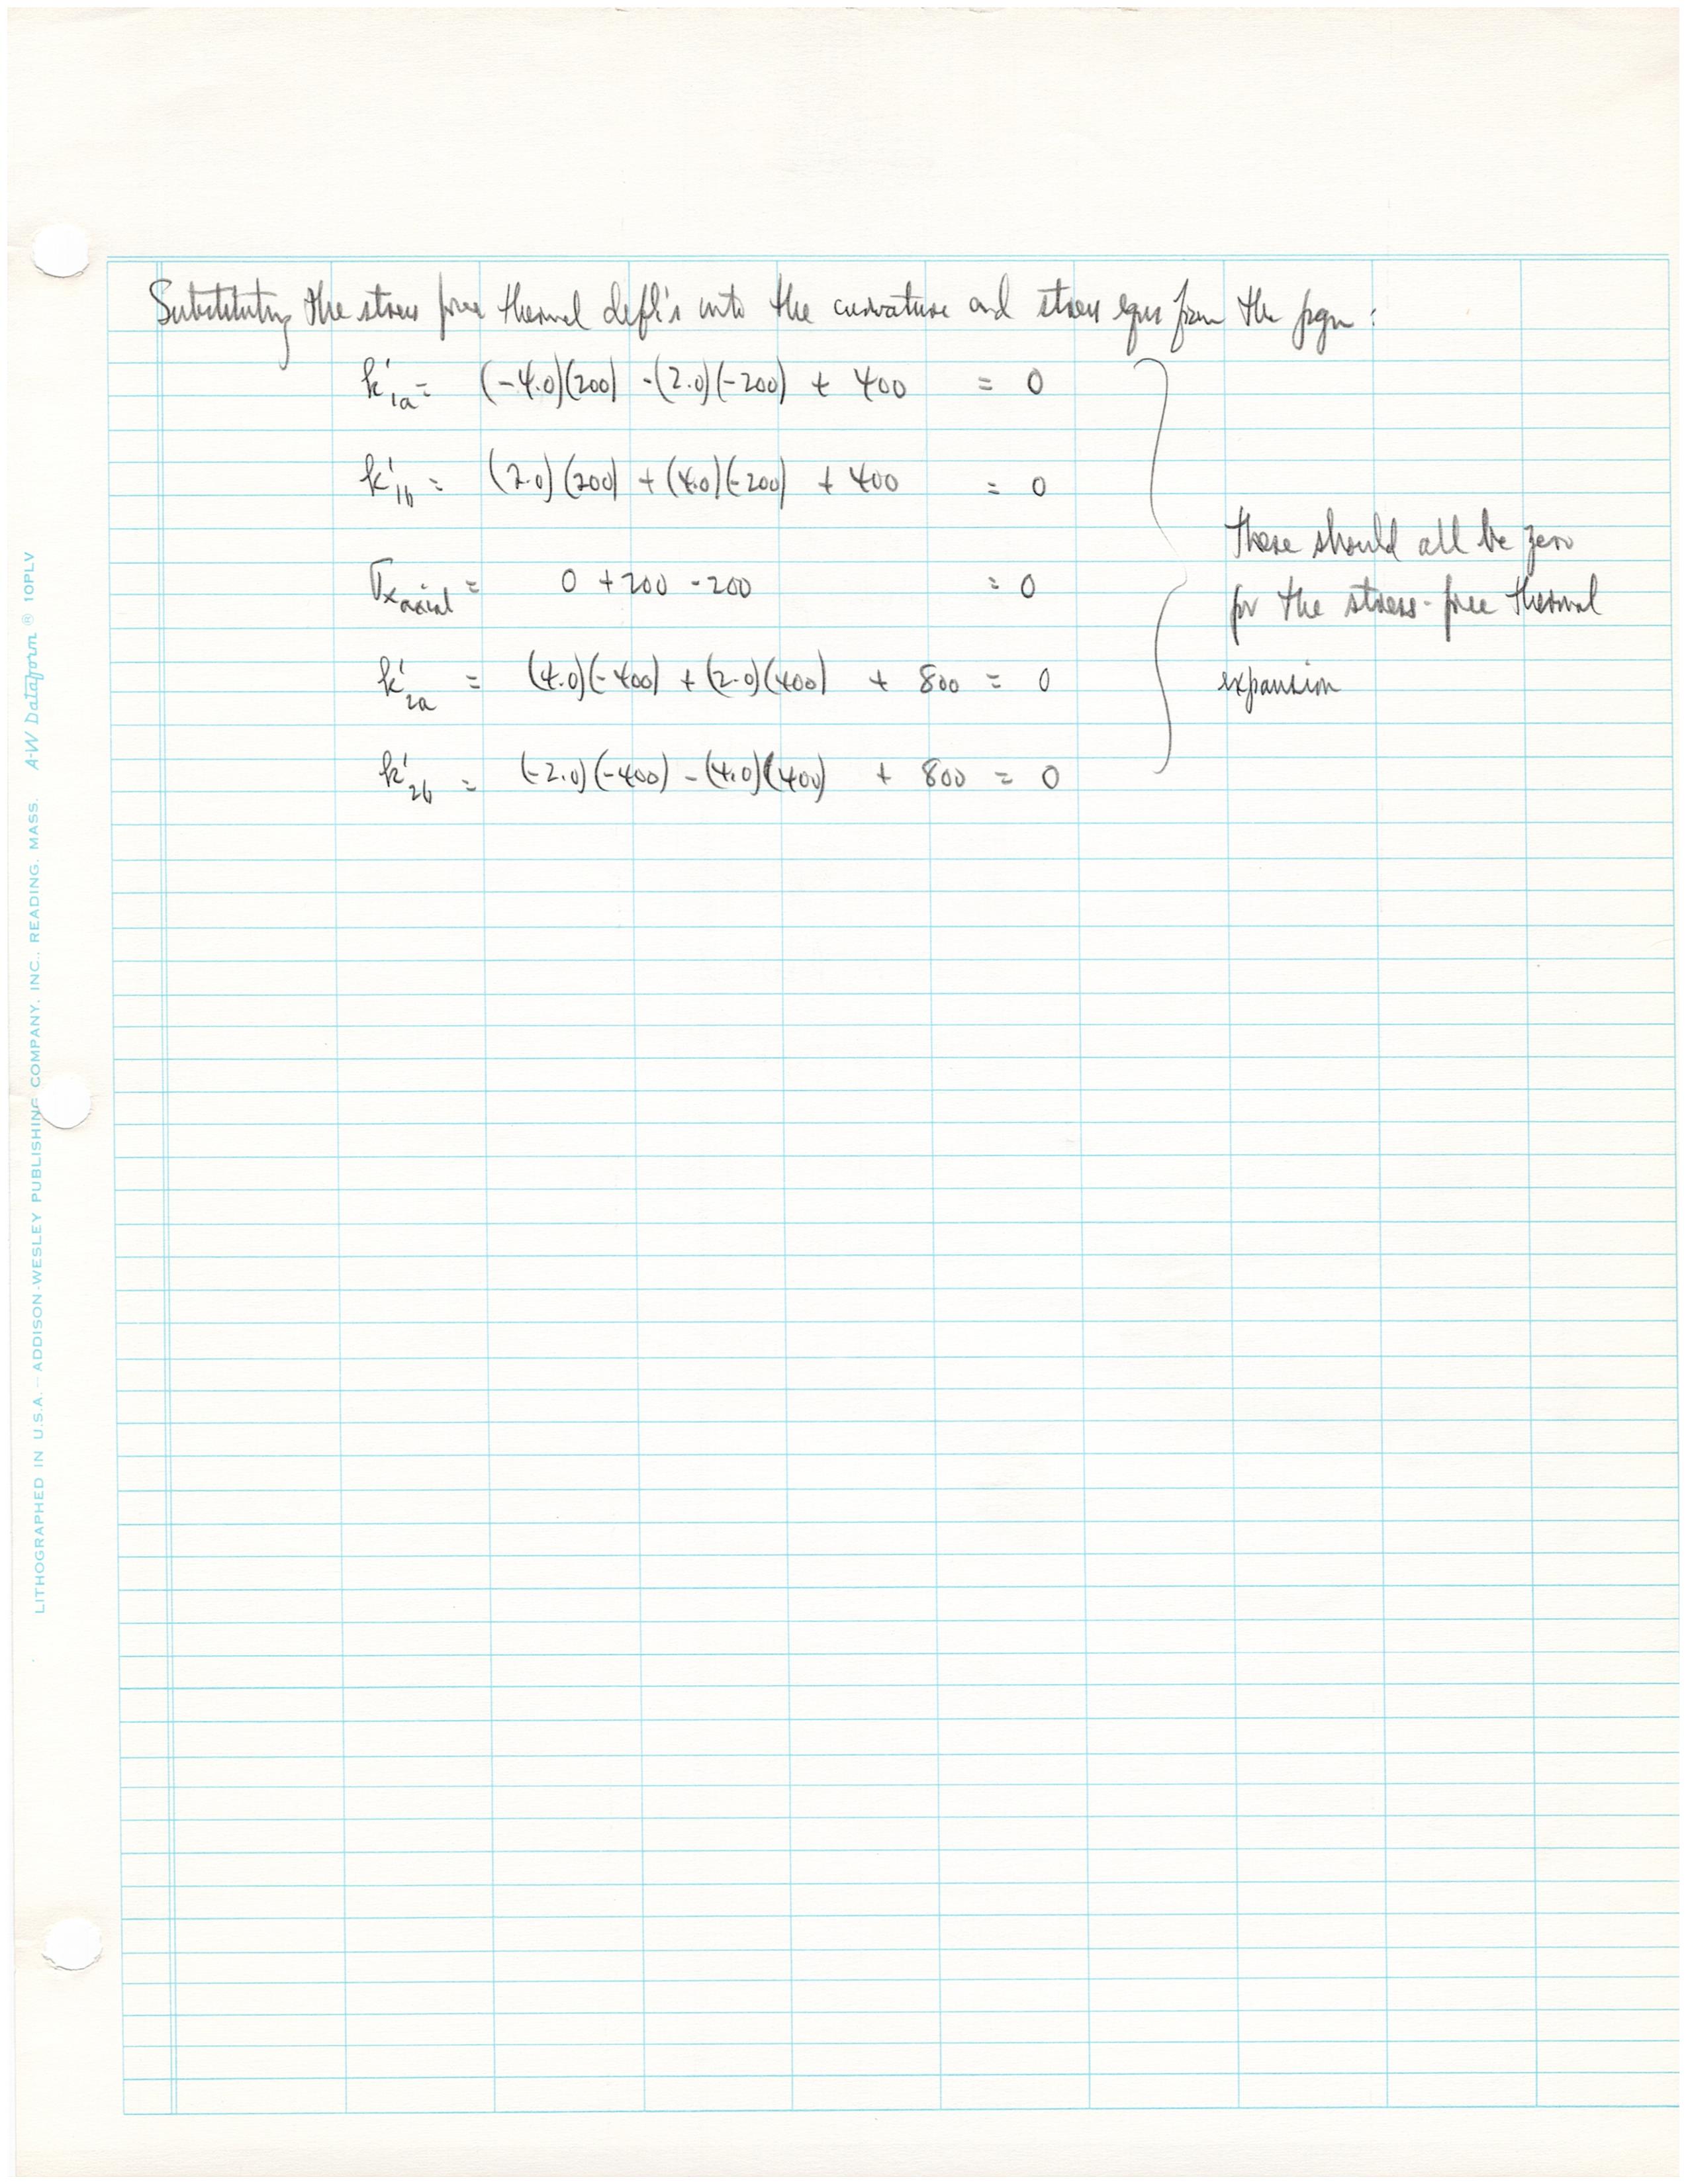 Substituting the stress free thermal defl's into the curvature and stress eqns from the pgm :
k'1a = (-4.0)(200) -(2.0)(-200) + 400 = 0
k'1b = (2.0)(200) + (4.0)(-200) + 400 = 0
σx axial = 0 + 200 - 200 = 0
k'2a = (4.0)(-400) + (2.0)(400) + 800 = 0
k'2b = (-2.0)(-400) - (4.0)(400) + 800 = 0
These should all be zero
for the stress-free thermal
expansion
LITHOGRAPHED IN U.S.A. — ADDISON-WESLEY PUBLISHING COMPANY, INC., READING, MASS. A-W Dataform ® 10PLV